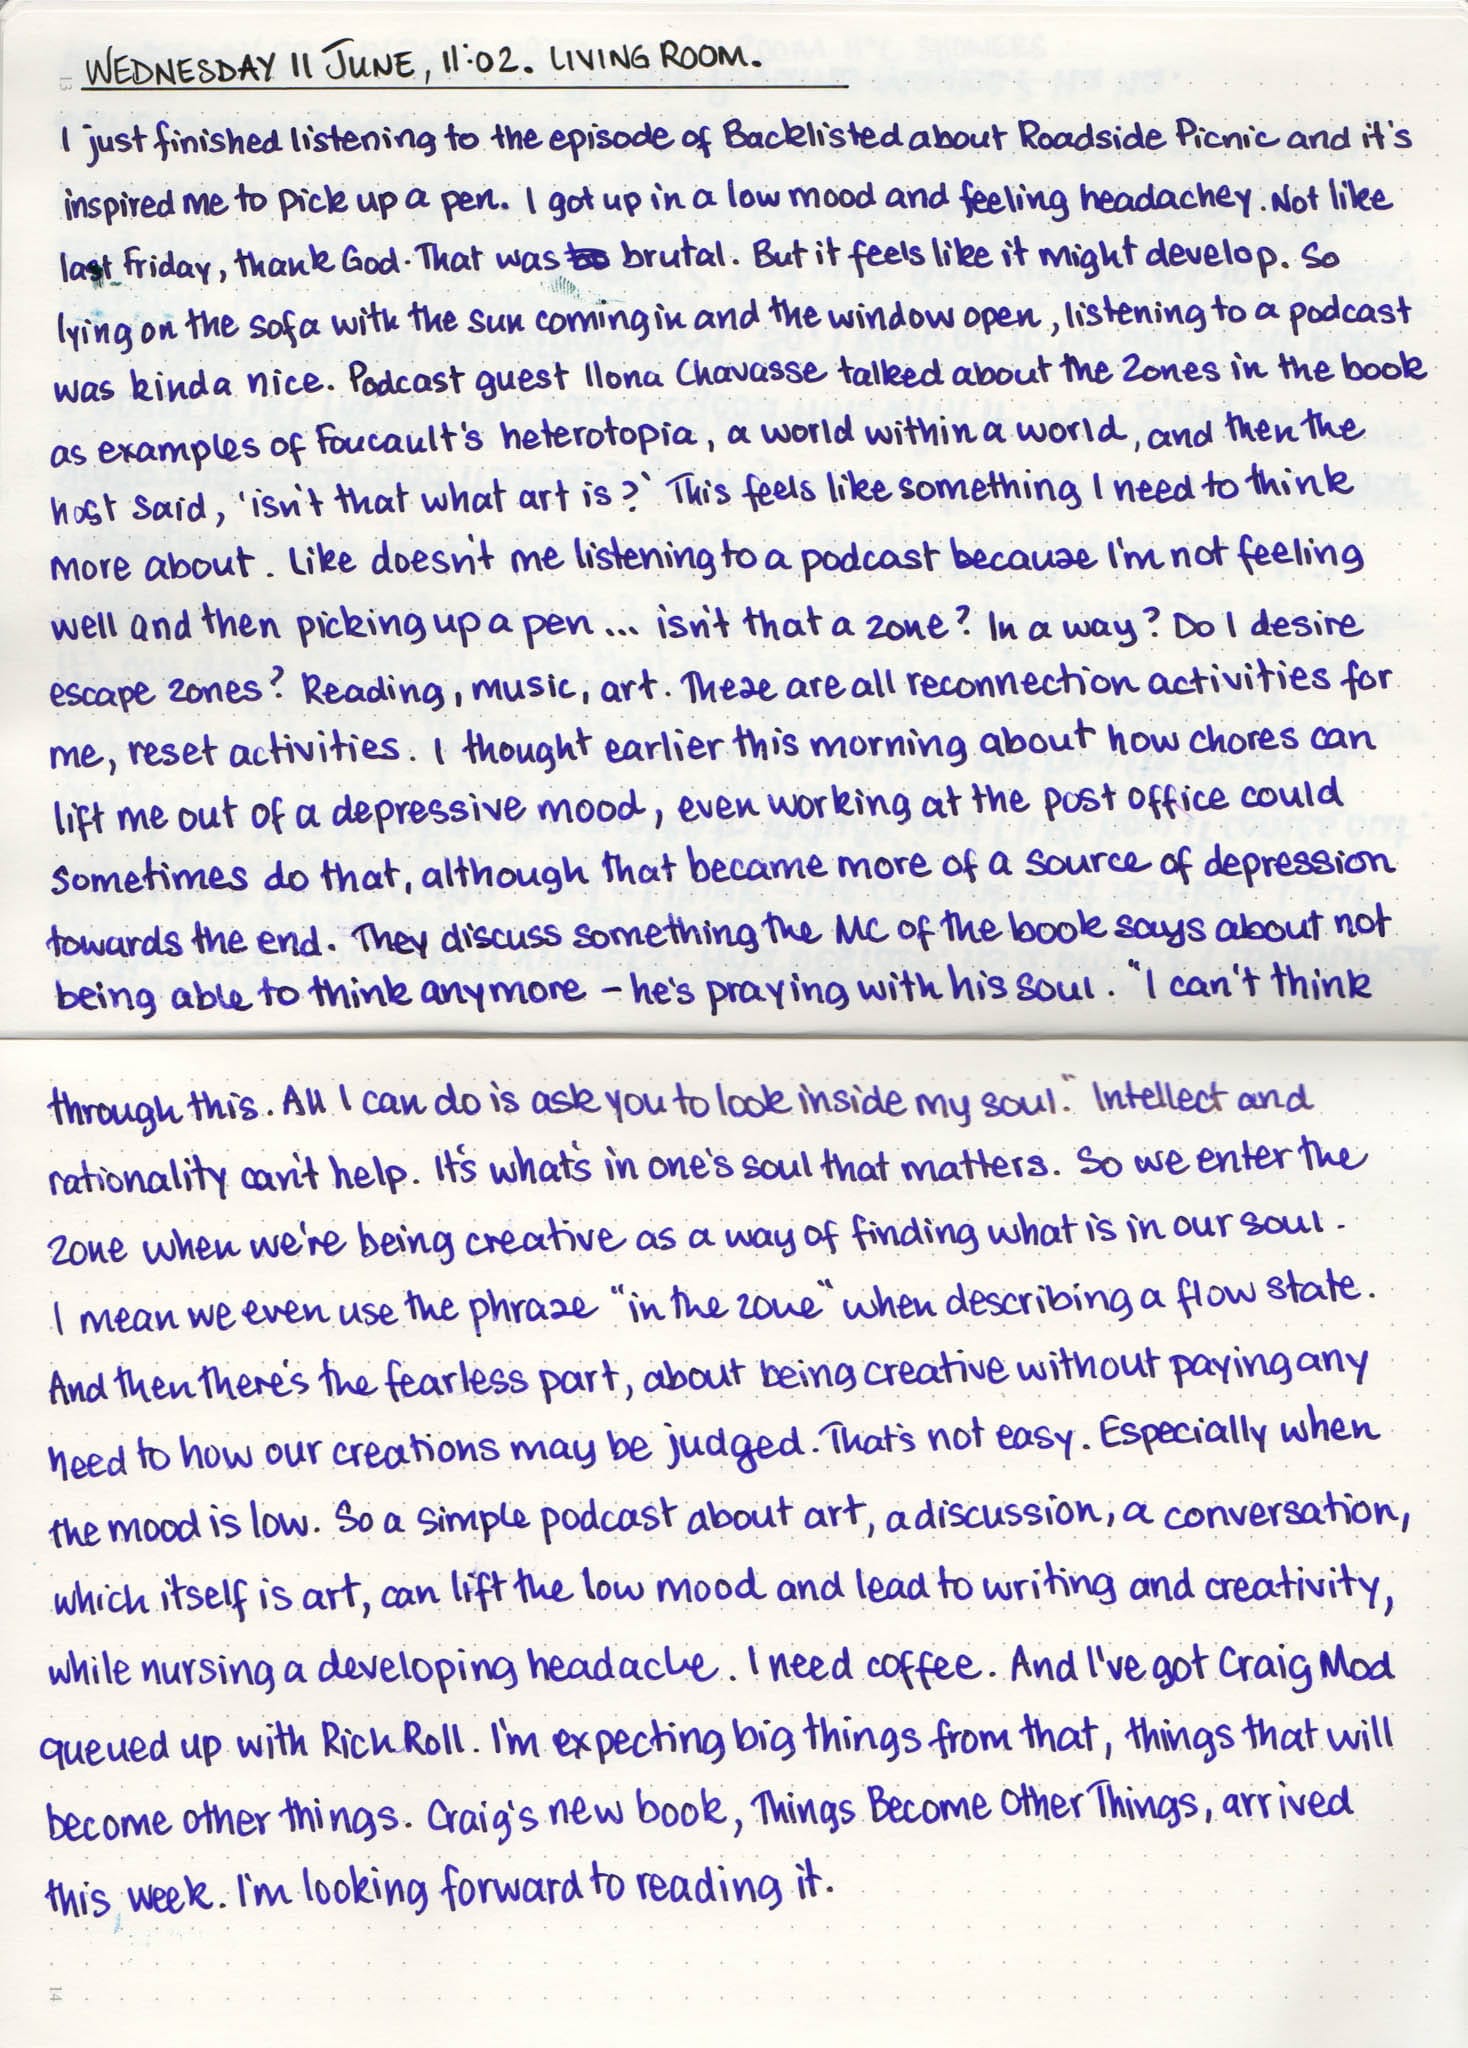 WEDNESDAY 11 JUNE, 11:02. LIVING ROOM.
I just finished listening to the episode of Backlisted about Roadside Picnic and it's
inspired me to pick up a pen. I got up in a low mood and feeling headachey. Not like
last Friday, thank God. That was brutal. But it feels like it might develop. So
lying on the sofa with the sun coming in and the window open, listening to a podcast
was kinda nice. Podcast guest Ilona Chavasse talked about the Zones in the book
as examples of Foucault's heterotopia, a world within a world, and then the
host said, 'isn't that what art is?' This feels like something I need to think
more about. Like doesn't me listening to a podcast because I'm not feeling
well and then picking up a pen... isn't that a zone? In a way? Do I desire
escape zones? Reading, music, art. These are all reconnection activities for
me, reset activities. I thought earlier this morning about how chores can
lift me out of a depressive mood, even working at the post office could
sometimes do that, although that became more of a source of depression
towards the end. They discuss something the MC of the book says about not
being able to think anymore – he's praying with his soul. "I can't think
through this. All I can do is ask you to look inside my soul." Intellect and
rationality can't help. It's what's in one's soul that matters. So we enter the
zone when we're being creative as a way of finding what is in our soul.
I mean we even use the phrase "in the zone" when describing a flow state.
And then there's the fearless part, about being creative without paying any
heed to how our creations may be judged. That's not easy. Especially when
the mood is low. So a simple podcast about art, a discussion, a conversation,
which itself is art, can lift the low mood and lead to writing and creativity,
while nursing a developing headache. I need coffee. And I've got Craig Mod
queued up with Rich Roll. I'm expecting big things from that, things that will
become other things. Craig's new book, Things Become Other Things, arrived
this week. I'm looking forward to reading it.
14